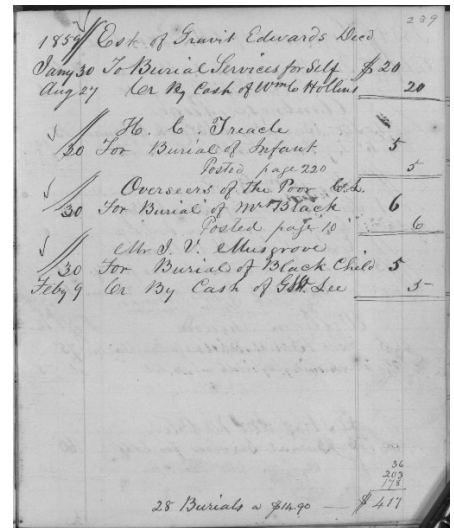 239
1859 Est of Gravit Edwards Decd
Jany 30 To Burial Services for Self $ 20
Aug 27 Cr By Cash of Wm C Hollins 20
H. C. Treacle
30 For Burial of Infant 5
Posted page 220 5
Overseers of the Poor
30 For Burial of Mr Black 6
Posted page 10 6
Mr J. V. Musgrove
30 For Burial of Black Child 5
Feby 9 Cr By Cash of Lee 5
36
203
178
28 Burials a $14.90 — $ 417